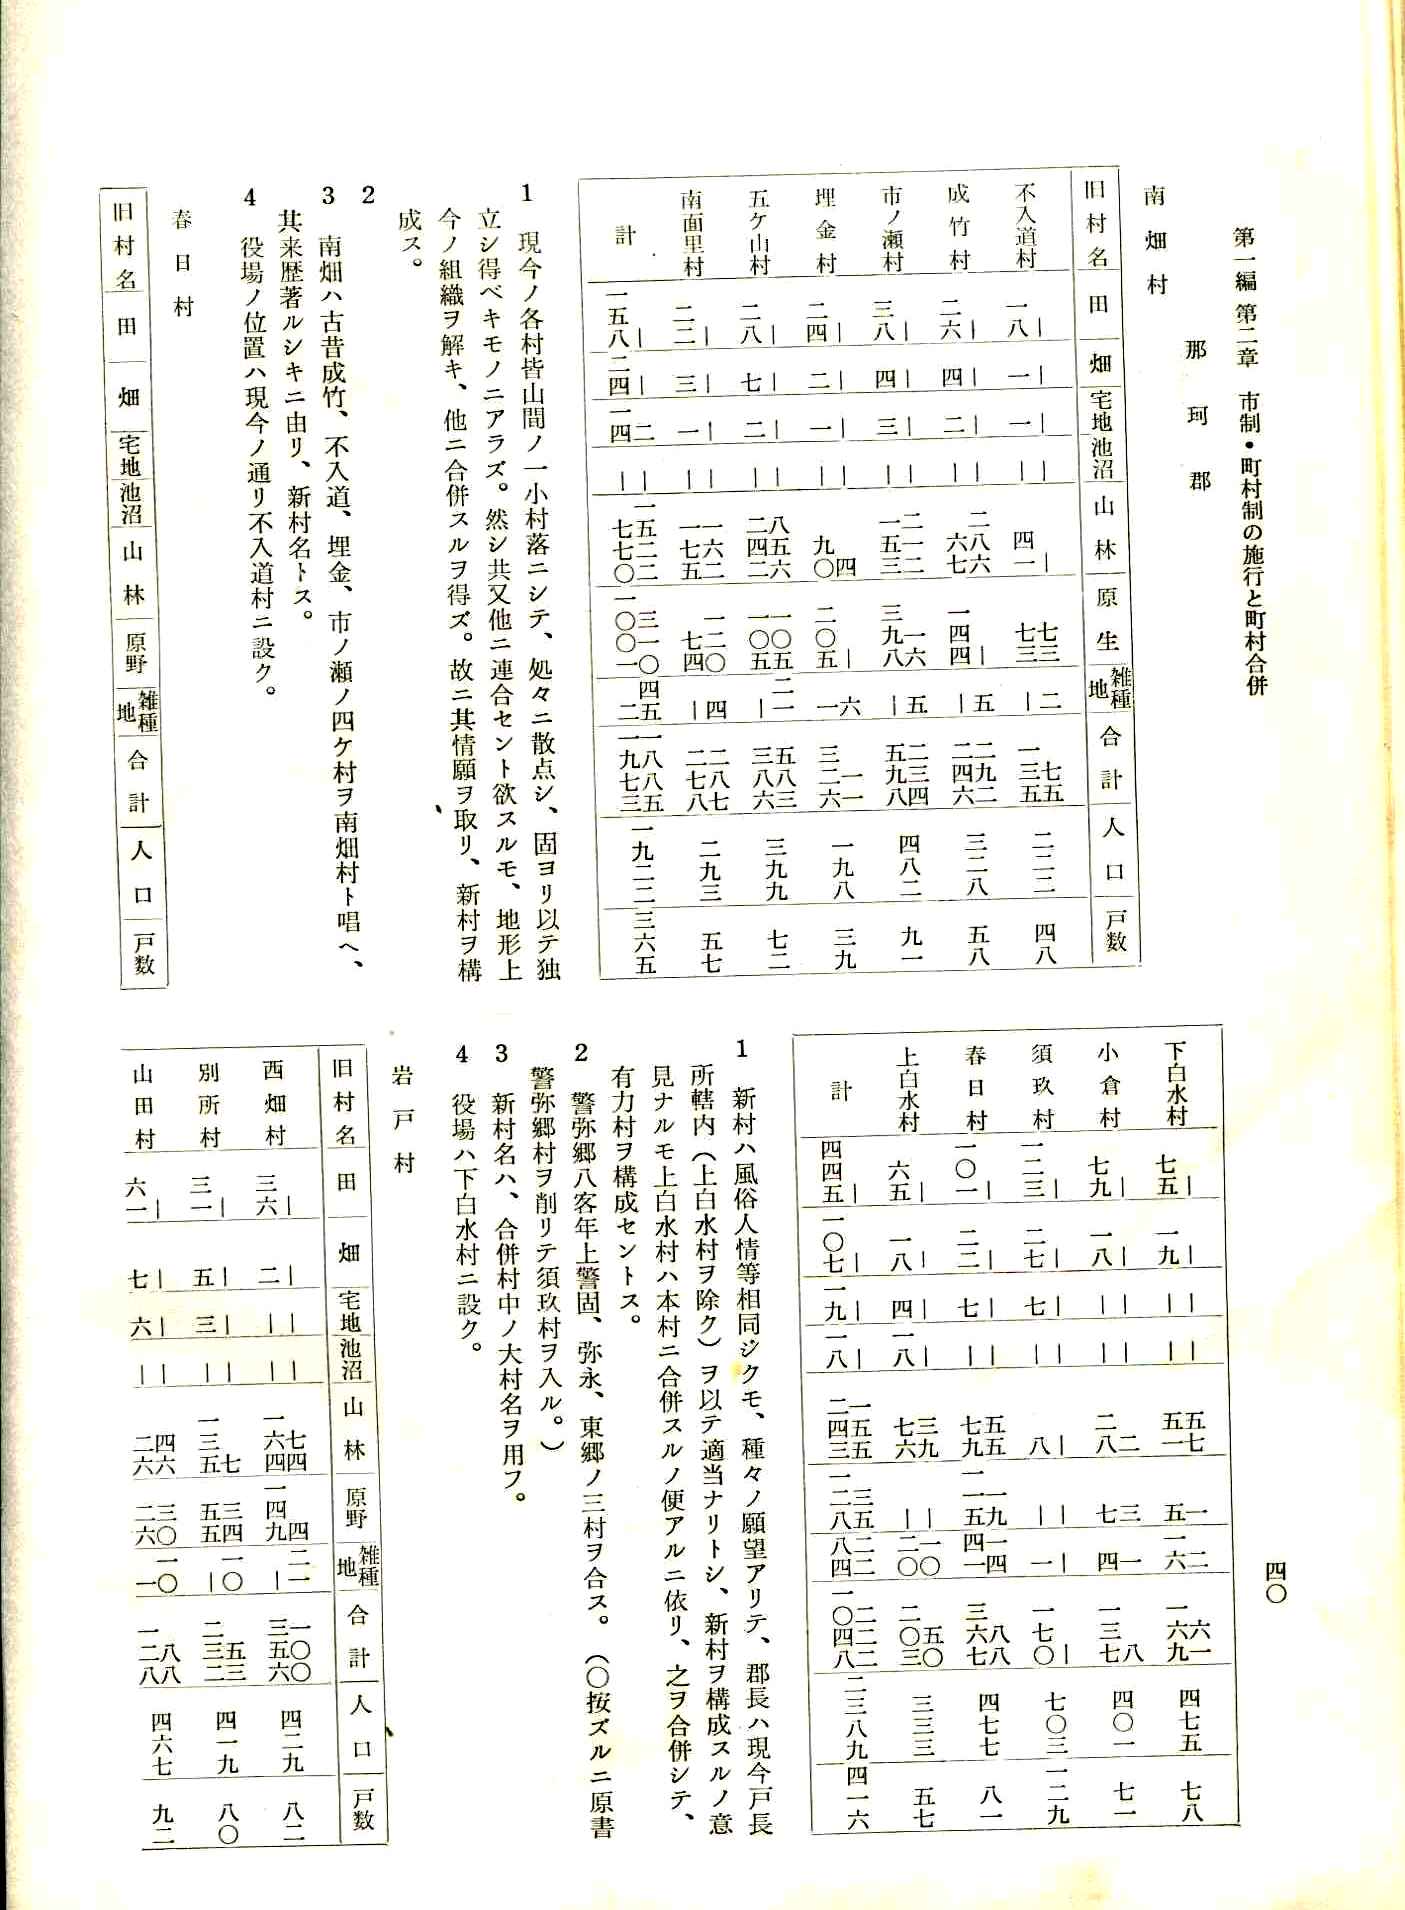 四〇
第一編 第二章　市制・町村制の施行と町村合併
那珂郡
南畑村
旧村名 田 畑 宅地 池沼 山林 原生 雑種地 合計 人口 戸数
不入道村 ｜ 一八 ｜ 一 ｜ 一 ｜ ｜ ｜ 四一 七三 七三 二 ｜ 七五 一三五 二二二 四八
成竹村 ｜ 二六 ｜ 四 ｜ 二 ｜ ｜ 二八六 六七 ｜ 一四四 五 ｜ 二九二 二四六 三二八 五八
市ノ瀬村 ｜ 三八 ｜ 四 ｜ 三 ｜ ｜ 二一二 一五三 一六 三九八 五 ｜ 二三四 五九八 四八二 九一
埋金村 ｜ 二四 ｜ 二 ｜ 一 ｜ ｜ 四 九〇 ｜ 二〇五 六 一 一一 三二六 一九八 三九
五ケ山村 ｜ 二八 ｜ 七 ｜ 二 ｜ ｜ 八五六 二四二 一〇五 一〇五 二一 ｜ 五八三 三八六 三九九 七二
南面里村 ｜ 二二 ｜ 三 ｜ 一 ｜ ｜ 一六二 一七五 一二〇 七四 四 ｜ 二八七 二七八 二九三 五七
計 ｜ 一五八 ｜ 二四 二 一四 ｜ ｜ 一五二二 七七〇 三一〇 一〇〇一 四五 二 一八八五 一九七三 一九二二 三六五
1　現今ノ各村皆山間ノ一小村落ニシテ、処々ニ散点シ、固ヨリ以テ独
立シ得ベキモノニアラズ。然シ共又他ニ連合セント欲スルモ、地形上
今ノ組織ヲ解キ、他ニ合併スルヲ得ズ。故ニ其情願ヲ取リ、新村ヲ構
成ス。
2
3　南畑ハ古昔成竹、不入道、埋金、市ノ瀬ノ四ケ村ヲ南畑村ト唱ヘ、
其来歴著ルシキニ由リ、新村名トス。
4　役場ノ位置ハ現今ノ通リ不入道村ニ設ク。
春日村
旧村名 田 畑 宅地 池沼 山林 原野 雑種地 合計 人口 戸数
下白水村 ｜ 七五 ｜ 一九 ｜ ｜ ｜ ｜ 五七 五一 一 五 二 一六 六一 一六九 四七五 七八
小倉村 ｜ 七九 ｜ 一八 ｜ ｜ ｜ ｜ 二 二八 三 七 一 四 八 一三七 四〇一 七一
須玖村 ｜ 一二三 ｜ 二七 ｜ 七 ｜ ｜ ｜ 八 ｜ ｜ ｜ 一 ｜ 一七〇 七〇三 一二九
春日村 ｜ 一〇一 ｜ 二二 ｜ 七 ｜ ｜ 五五 七九 一九 一一五 一四 四一 八八 三六七 四七七 八一
上白水村 ｜ 六五 ｜ 一八 ｜ 四 ｜ 一八 三九 七六 ｜ ｜ 一〇 二〇 五〇 二〇三 三三三 五七
計 ｜ 四四五 ｜ 一〇七 ｜ 一九 ｜ 一八 一五五 二四三 三五 一二八 二二 八四 二二二 一〇四八 二三八九 四一六
1　新村ハ風俗人情等相同ジクモ、種々ノ願望アリテ、郡長ハ現今戸長
所轄内（上白水村ヲ除ク）ヲ以テ適当ナリトシ、新村ヲ構成スルノ意
見ナルモ上白水村ハ本村ニ合併スルノ便アルニ依リ、之ヲ合併シテ、
有力村ヲ構成セントス。
2　警弥郷八客年上警固、弥永、東郷ノ三村ヲ合ス。（〇按ズルニ原書
警弥郷村ヲ削リテ須玖村ヲ入ル。）
3　新村名ハ、合併村中ノ大村名ヲ用フ。
4　役場ハ下白水村ニ設ク。
岩戸村
旧村名 田 畑 宅地 池沼 山林 原野 雑種地 合計 人口 戸数
西畑村 ｜ 三六 ｜ 二 ｜ ｜ ｜ ｜ 七四 一六四 四 一四九 二一 ｜ 一〇〇 三五六 四二九 八二
別所村 ｜ 三一 ｜ 五 ｜ 三 ｜ ｜ 七 一三五 三四 五五 一〇 ｜ 五三 二三二 四一九 八〇
山田村 ｜ 六一 ｜ 七 ｜ 六 ｜ ｜ 四六 二六 三〇 二六 一〇 一 八八 一二八 四六七 九二